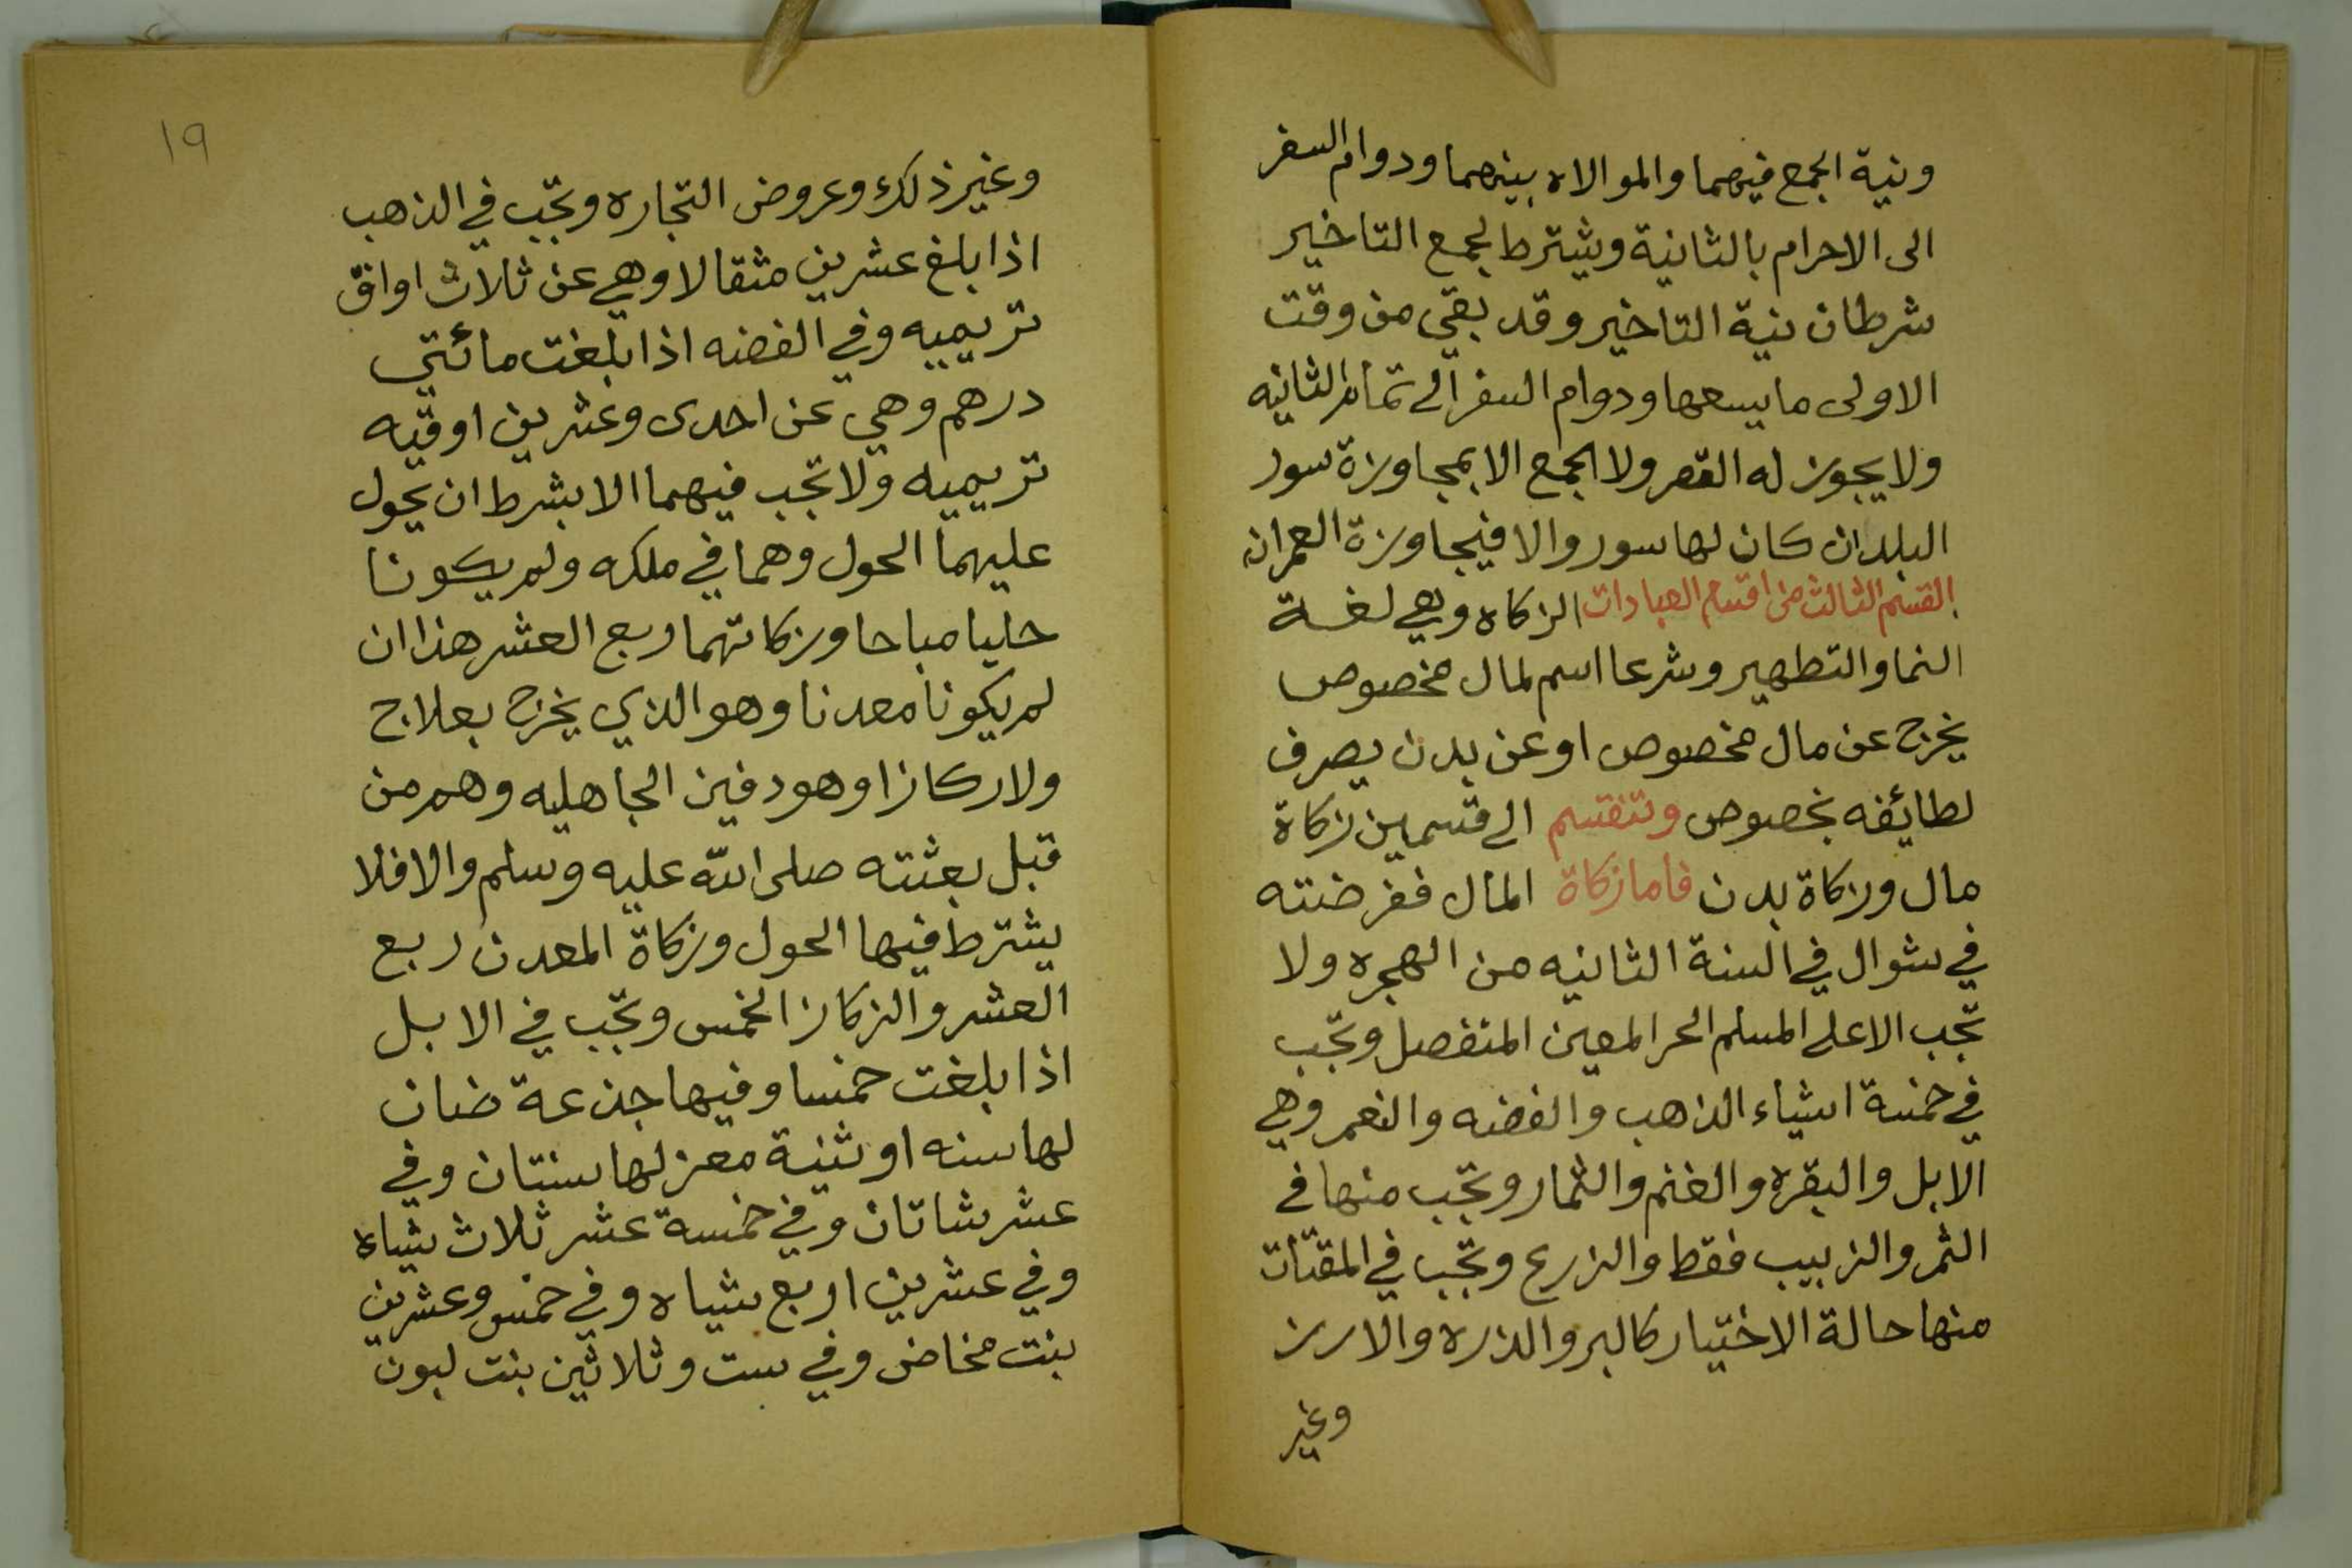 ونية الجمع فيهما والموالاه بينهما ودوام السفر
الى الاحرام بالثانية ويشترط لجمع التاخير
شرطان نية التاخير وقد بقي من وقت
الاولى ما يسعها ودوام السفر الى تمام الثانيه
ولا يجوز له القصر ولا الجمع الا بمجاوزة سور
البلد ان كان لها سور والا فبمجاوزة العمران
القسم الثالث من اقسام العبادات الزكاه وهي لغة
النما والتطهير وشرعا اسم لمال مخصوص
يخرج عن مال مخصوص او عن بدن يصرف
لطائفه بخصوص وتنقسم الى قسمين زكاة
مال وزكاة بدن فاما زكاة المال ففرضته
في شوال في السنة الثانيه من الهجره ولا
تجب الا على المسلم الحر المعين المنفصل وتجب
في خمسة اشياء الذهب والفضه والنعم وهي
الابل والبقره والغنم والثمار وتجب منها في
الثمر والزبيب فقط والزرع وتجب في المقتات
منها حالة الاختيار كالبر والذره والارز
وغير
١٩
وغير ذلك وعروض التجاره وتجب في الذهب
اذا بلغ عشرين مثقالا وهي عن ثلاث اواق
تريميه وفي الفضه اذا بلغت مائتي
درهم وهي عن احدى وعشرين اوقيه
تريميه ولا تجب فيهما الا بشرط ان يحول
عليهما الحول وهما في ملكه ولم يكونا
حليا مباحا وزكاتهما ربع العشر هذا ان
لم يكونا معدنا وهو الذي يخرج بعلاج
ولا ركازا وهو دفين الجاهليه وهم من
قبل بعثته صلى الله عليه وسلم والا فلا
يشترط فيها الحول وزكاة المعدن ربع
العشر والزكاز الخمس وتجب في الابل
اذا بلغت خمسا وفيها جذعة ضان
لها سنه او ثنية معز لها سنتان وفي
عشر شاتان وفي خمسة عشر ثلاث شياه
وفي عشرين اربع شياه وفي خمس وعشرين
بنت مخاض وفي ست وثلاثين بنت لبون